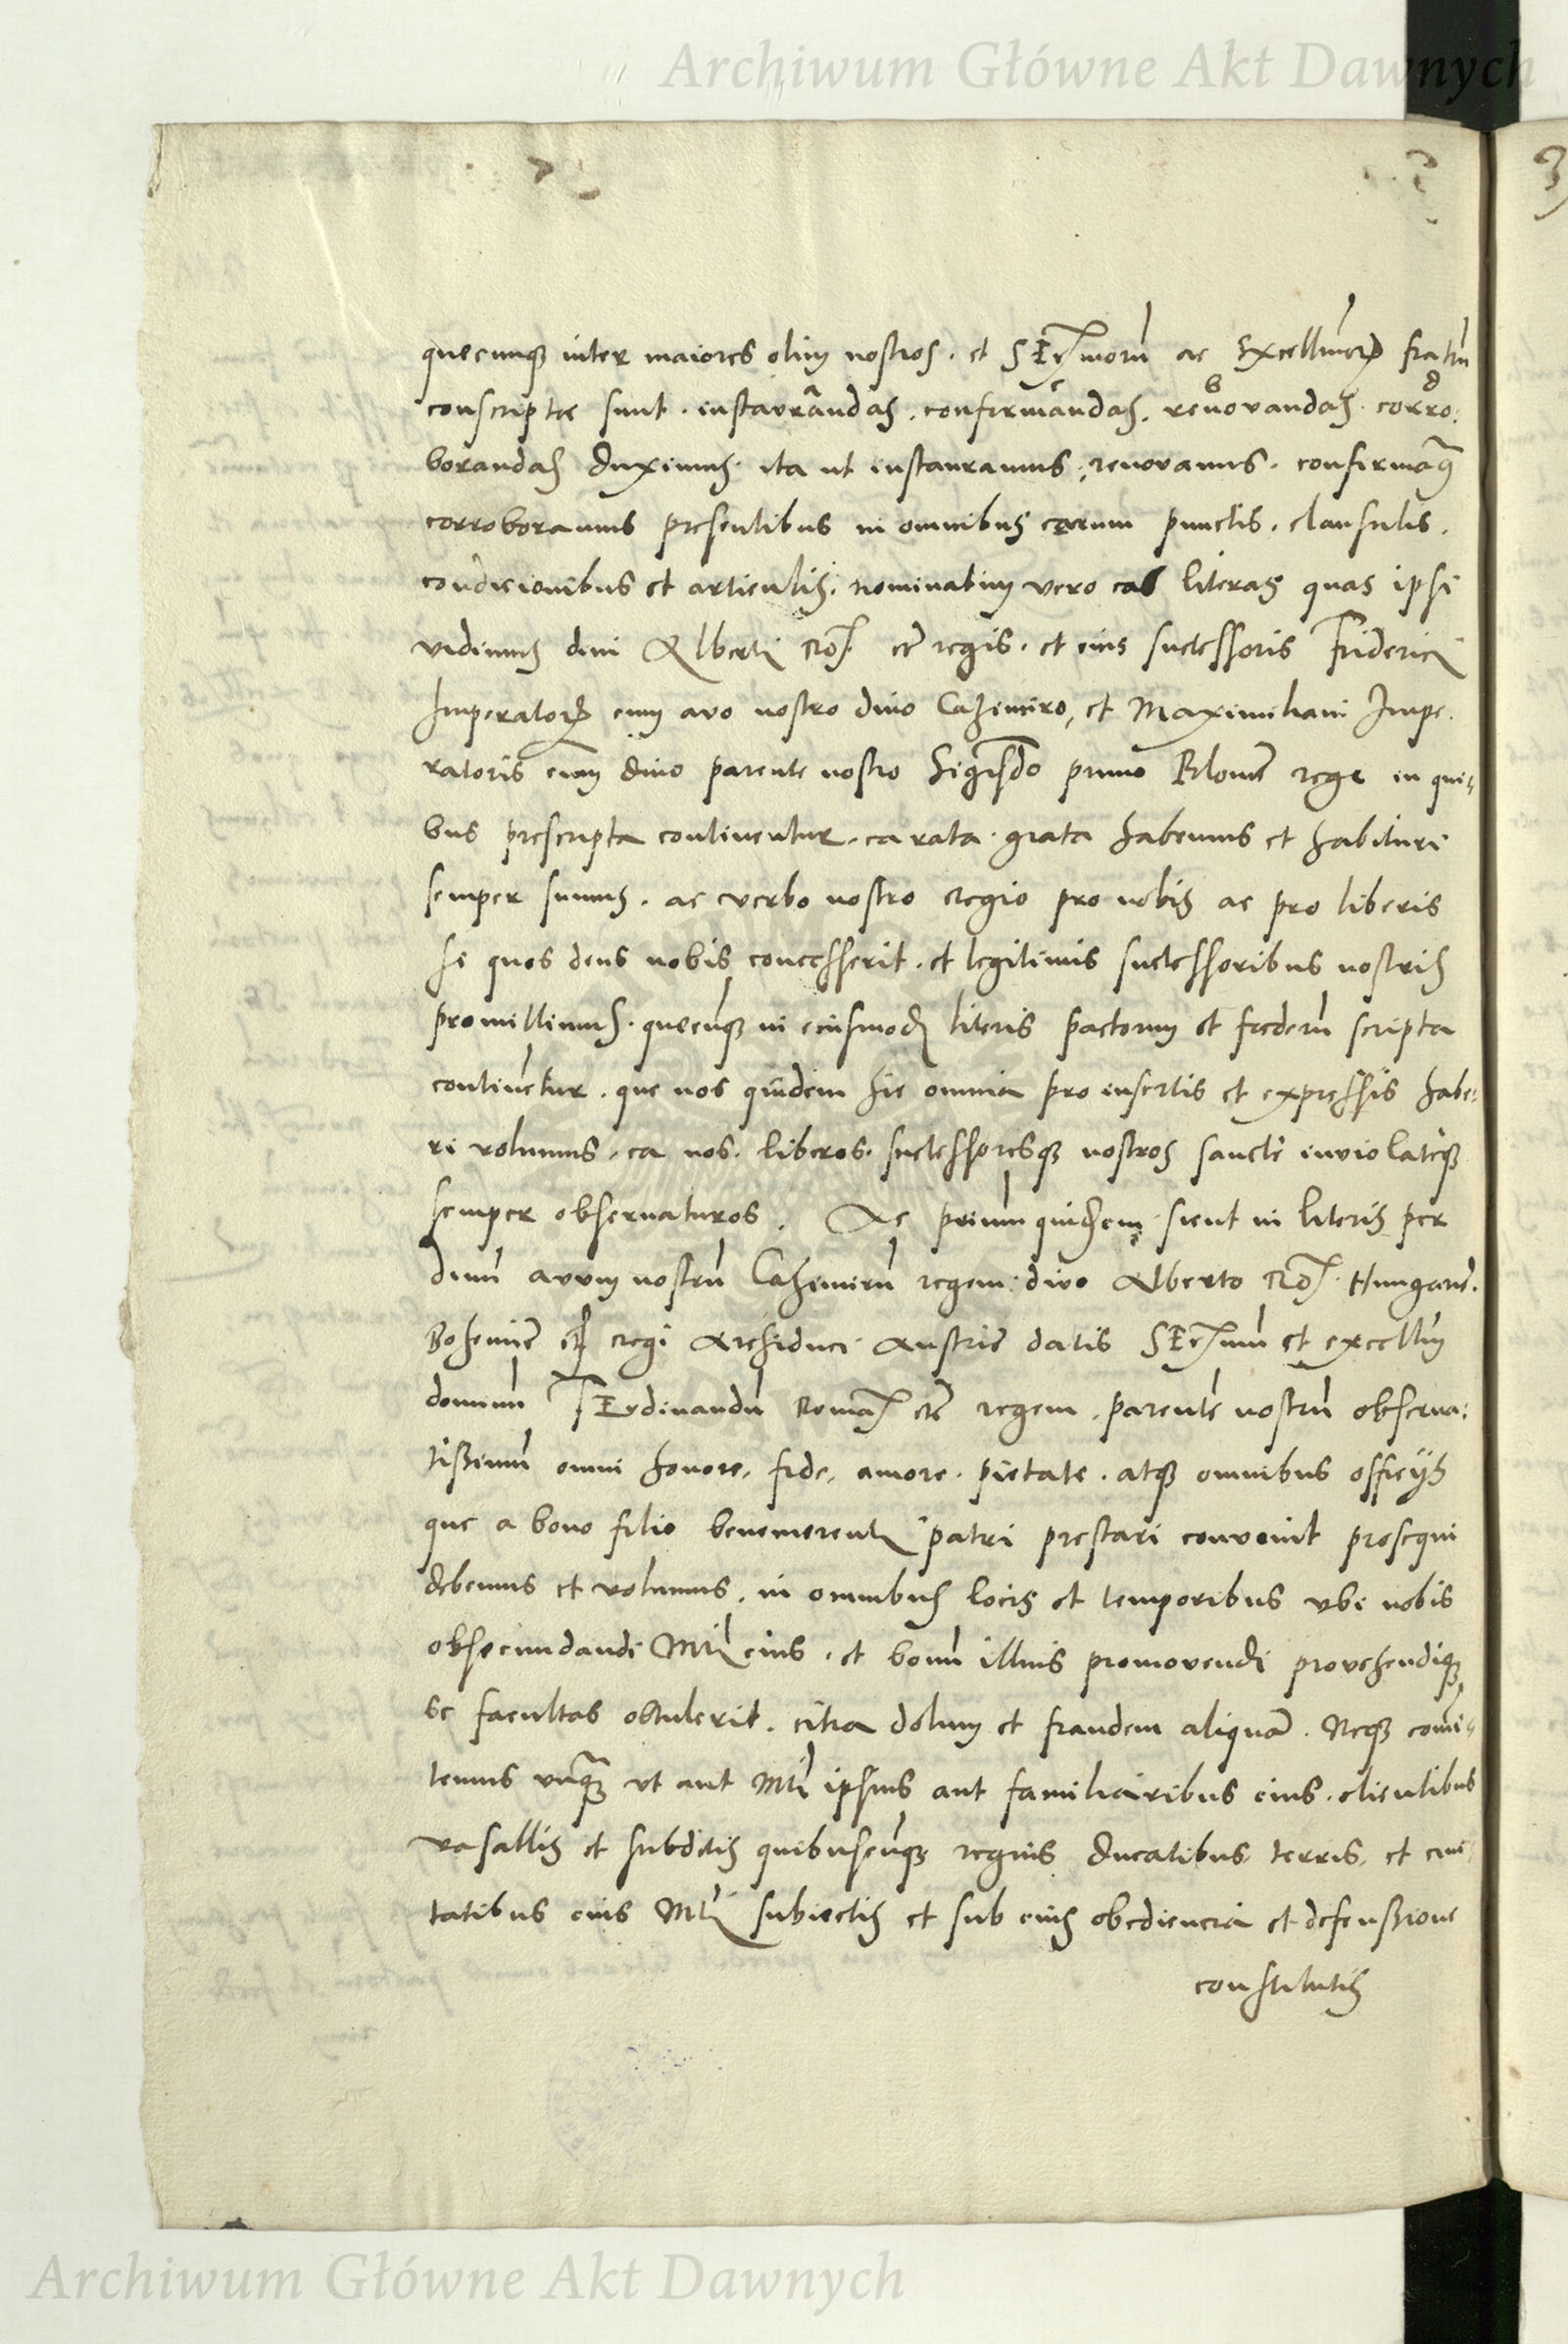 Archiwum Główne Akt Dawnych
quecunqꝫ inter maiores olim nostros. et SErmorũ ac Excellmorꝝ fratrũ
a c b d
conscripte sunt. instaurandas. confirmandas. renovandas. corro:
borandas duximus. ita ut instauramus, renovamus. confirmaꝰqꝫ
corroboramus presentibus in omnibus earum punctis. clausulis.
condicionibus et articulis. nominatim vero eas literas quas ipsi
vidimus divi Alberti Ro. etc regis. et eius successoris Friderici
Imperatorꝭ cum avo nostro divo Cazimiro, et Maximiliani Impe.
ratoris cum divo parente nostro Sigisdo primo Polonie rege in qui=
bus prescripta continentur. ea rata. grata habemus et habituri
semper sumus. ac verbo nostro Regio pro nobis ac pro liberis
si quos deus nobis concesserit. et legitimis successoribus nostris
promittimus. quecũqꝫ in eiusmodi literis pactorum et federũ scripta
continẽtur. que nos quidem hic omnia pro insertis et expressis habe:
ri volumus. ea nos. liberos. successoresqꝫ nostros sancte inviolateqꝫ
semper observaturos. Ac primum quidem sicut in literis per
divũ avum nostrũ Cazimirũ regem divo Alberto Ro. Hungarie.
Bohemie etc Regi Archiduci Austrie datis SErmum et excellm
dominũ FErdinandũ Roma. etc regem. parentẽ nostrũ observa:
tissimũ omni honore, fide, amore. pietate. atqꝫ omnibus officijs
que a bono filio benemerenti patri prestari convenit prosequi
debemus et volumus. in omnibus locis et temporibus ubi nobis
obsecundandi Mti eius. et bonũ illius promovendi provehendiqꝫ
se facultas obtulerit. citra dolum et fraudem aliquã. Neqꝫ comi=
temus unqꝫ ut aut Mti ipsius aut familiaribus eius. clientibus
vasallis et subditis quibuscũqꝫ regnis ducatibus terris. et civi
tatibus eius Mti subiectis et sub eius obediencia et defenssione
constitutis
Archiwum Główne Akt Dawnych